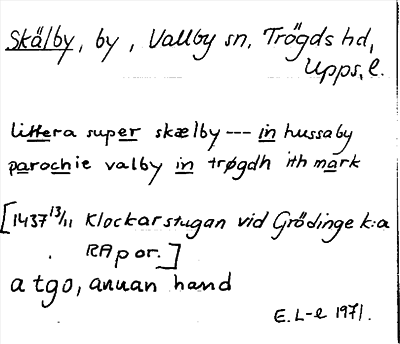 Skälby, by, Vallby sn, Trögds hd,
Upps. l.
littera super skælby --- in hussaby
parochie valby in trøgdh ith mark
[1437 13/11 Klockarstugan vid Grödinge k:a
RAp or.]
a tgo, annan hand
E. L-e 1971.